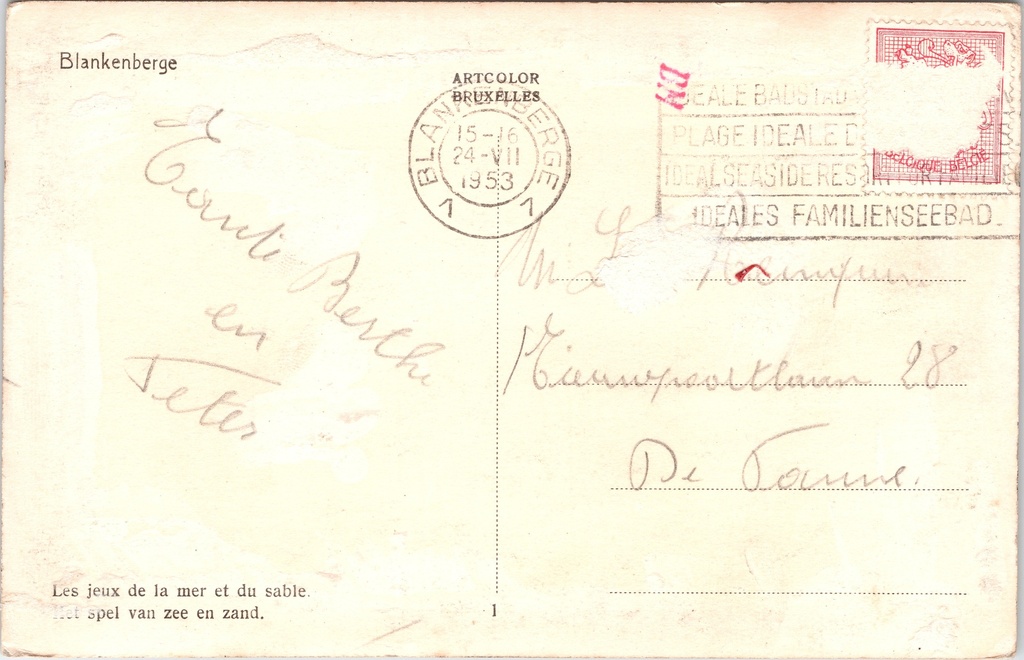 Blankenberge
ARTCOLOR
BRUXELLES
BLANKENBERGE
15-16
24-VII
1953
1 1
EALE BADSTAD
PLAGE IDEALE D
IDEAL SEASIDE RES
IDEALES FAMILIENSEEBAD
BELGIQUE-BELGIE
Tanti Berthe
en
Peter
Nieuwpoortlaan 28
De Panne.
Les jeux de la mer et du sable.
Het spel van zee en zand.
1